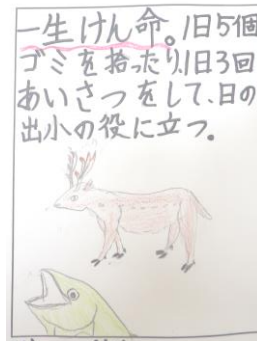 一生けん命。1日5個
ゴミを拾ったり、1日3回
あいさつをして、日の
出小の役に立つ。